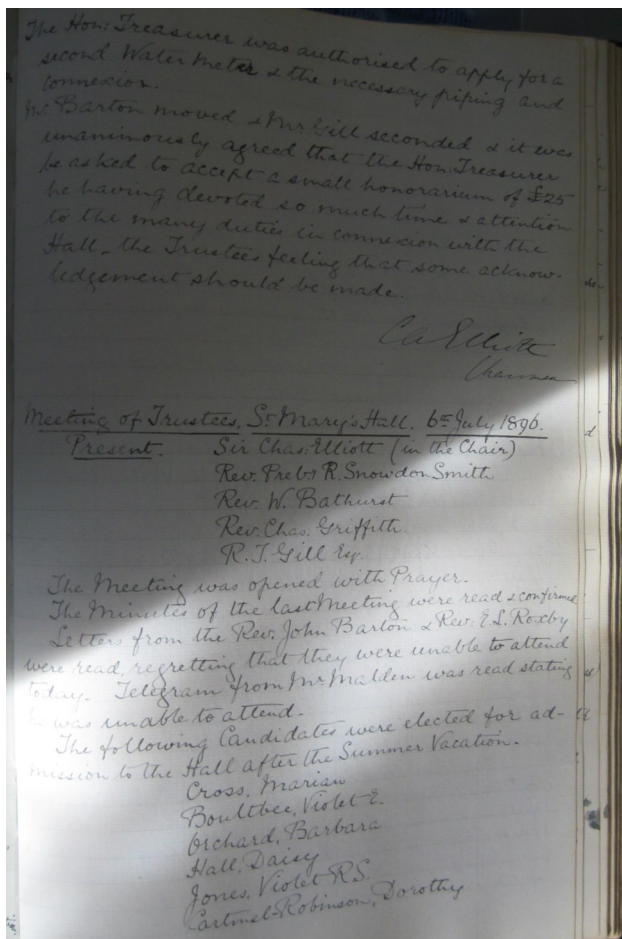 The Hon: Treasurer was authorised to apply for a
second Water Meter & the necessary piping and
connexion.
Mr Barton moved & Mr Gill seconded & it was
unanimously agreed that the Hon: Treasurer
be asked to accept a small honorarium of £25
he having devoted so much time & attention
to the many duties in connexion with the
Hall - the Trustees feeling that some acknow-
ledgement should be made.
C A Elliott
Chairman
Meeting of Trustees, St Mary's Hall. 6th July 1896.
Present. Sir Chas: Elliott (in the Chair)
Rev. Preby R. Snowdon Smith
Rev. W. Bathurst
Rev. Chas. Griffith
R. T. Gill Esq.
The Meeting was opened with Prayer.
The Minutes of the last Meeting were read & confirmed
Letters from the Rev. John Barton & Rev: E. L. Roxby
were read, regretting that they were unable to attend
today. Telegram from Mr Malden was read stating
he was unable to attend.
The following Candidates were elected for ad-
mission to the Hall after the Summer Vacation.
Cross, Marian
Boultbee, Violet E.
Orchard, Barbara
Hall, Daisy
Jones, Violet R.S.
Cartmel-Robinson, Dorothy